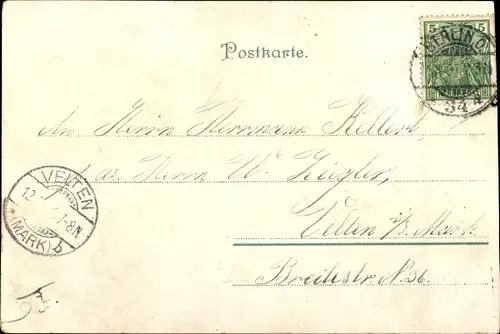 Postkarte.
5 5
BERLIN O
34
An Herrn Herrmann Kellert
Herrn W. Ziegler,
Velten i/d. Mark.
Breitestr N. 36.
VELTEN
12
7-8N.
(MARK) b